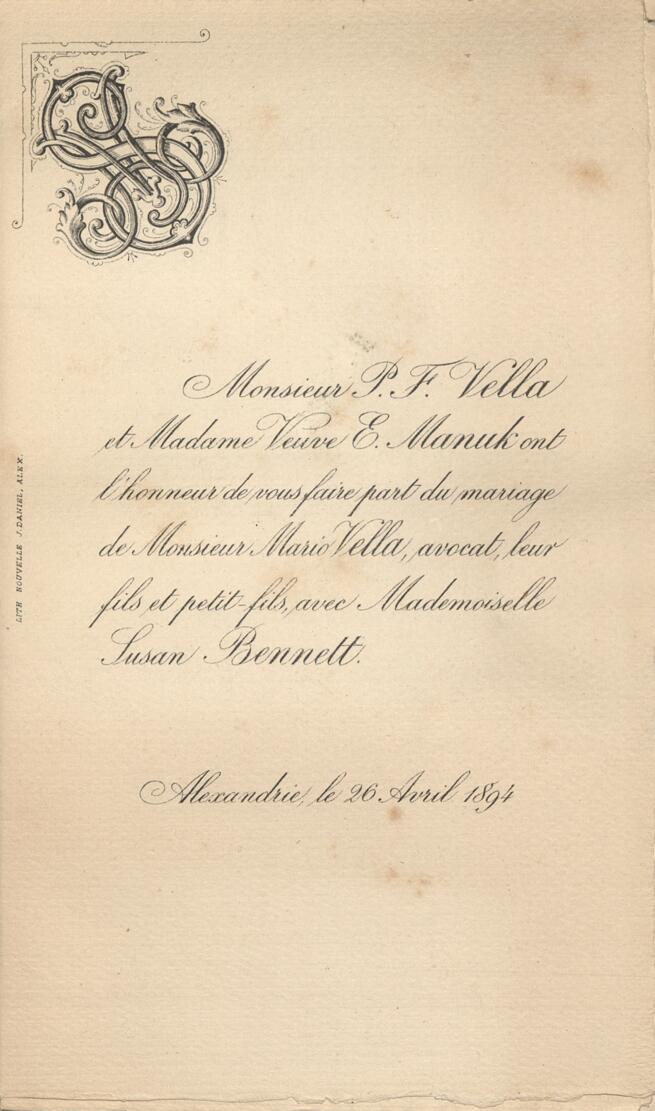 Monsieur P. F. Vella
et Madame Veuve E. Manuk ont
l'honneur de vous faire part du mariage
de Monsieur Mario Vella, avocat, leur
fils et petit-fils, avec Mademoiselle
Susan Bennett.
Alexandrie, le 26 Avril 1894
LITH NOUVELLE J. DANIEL, ALEX.